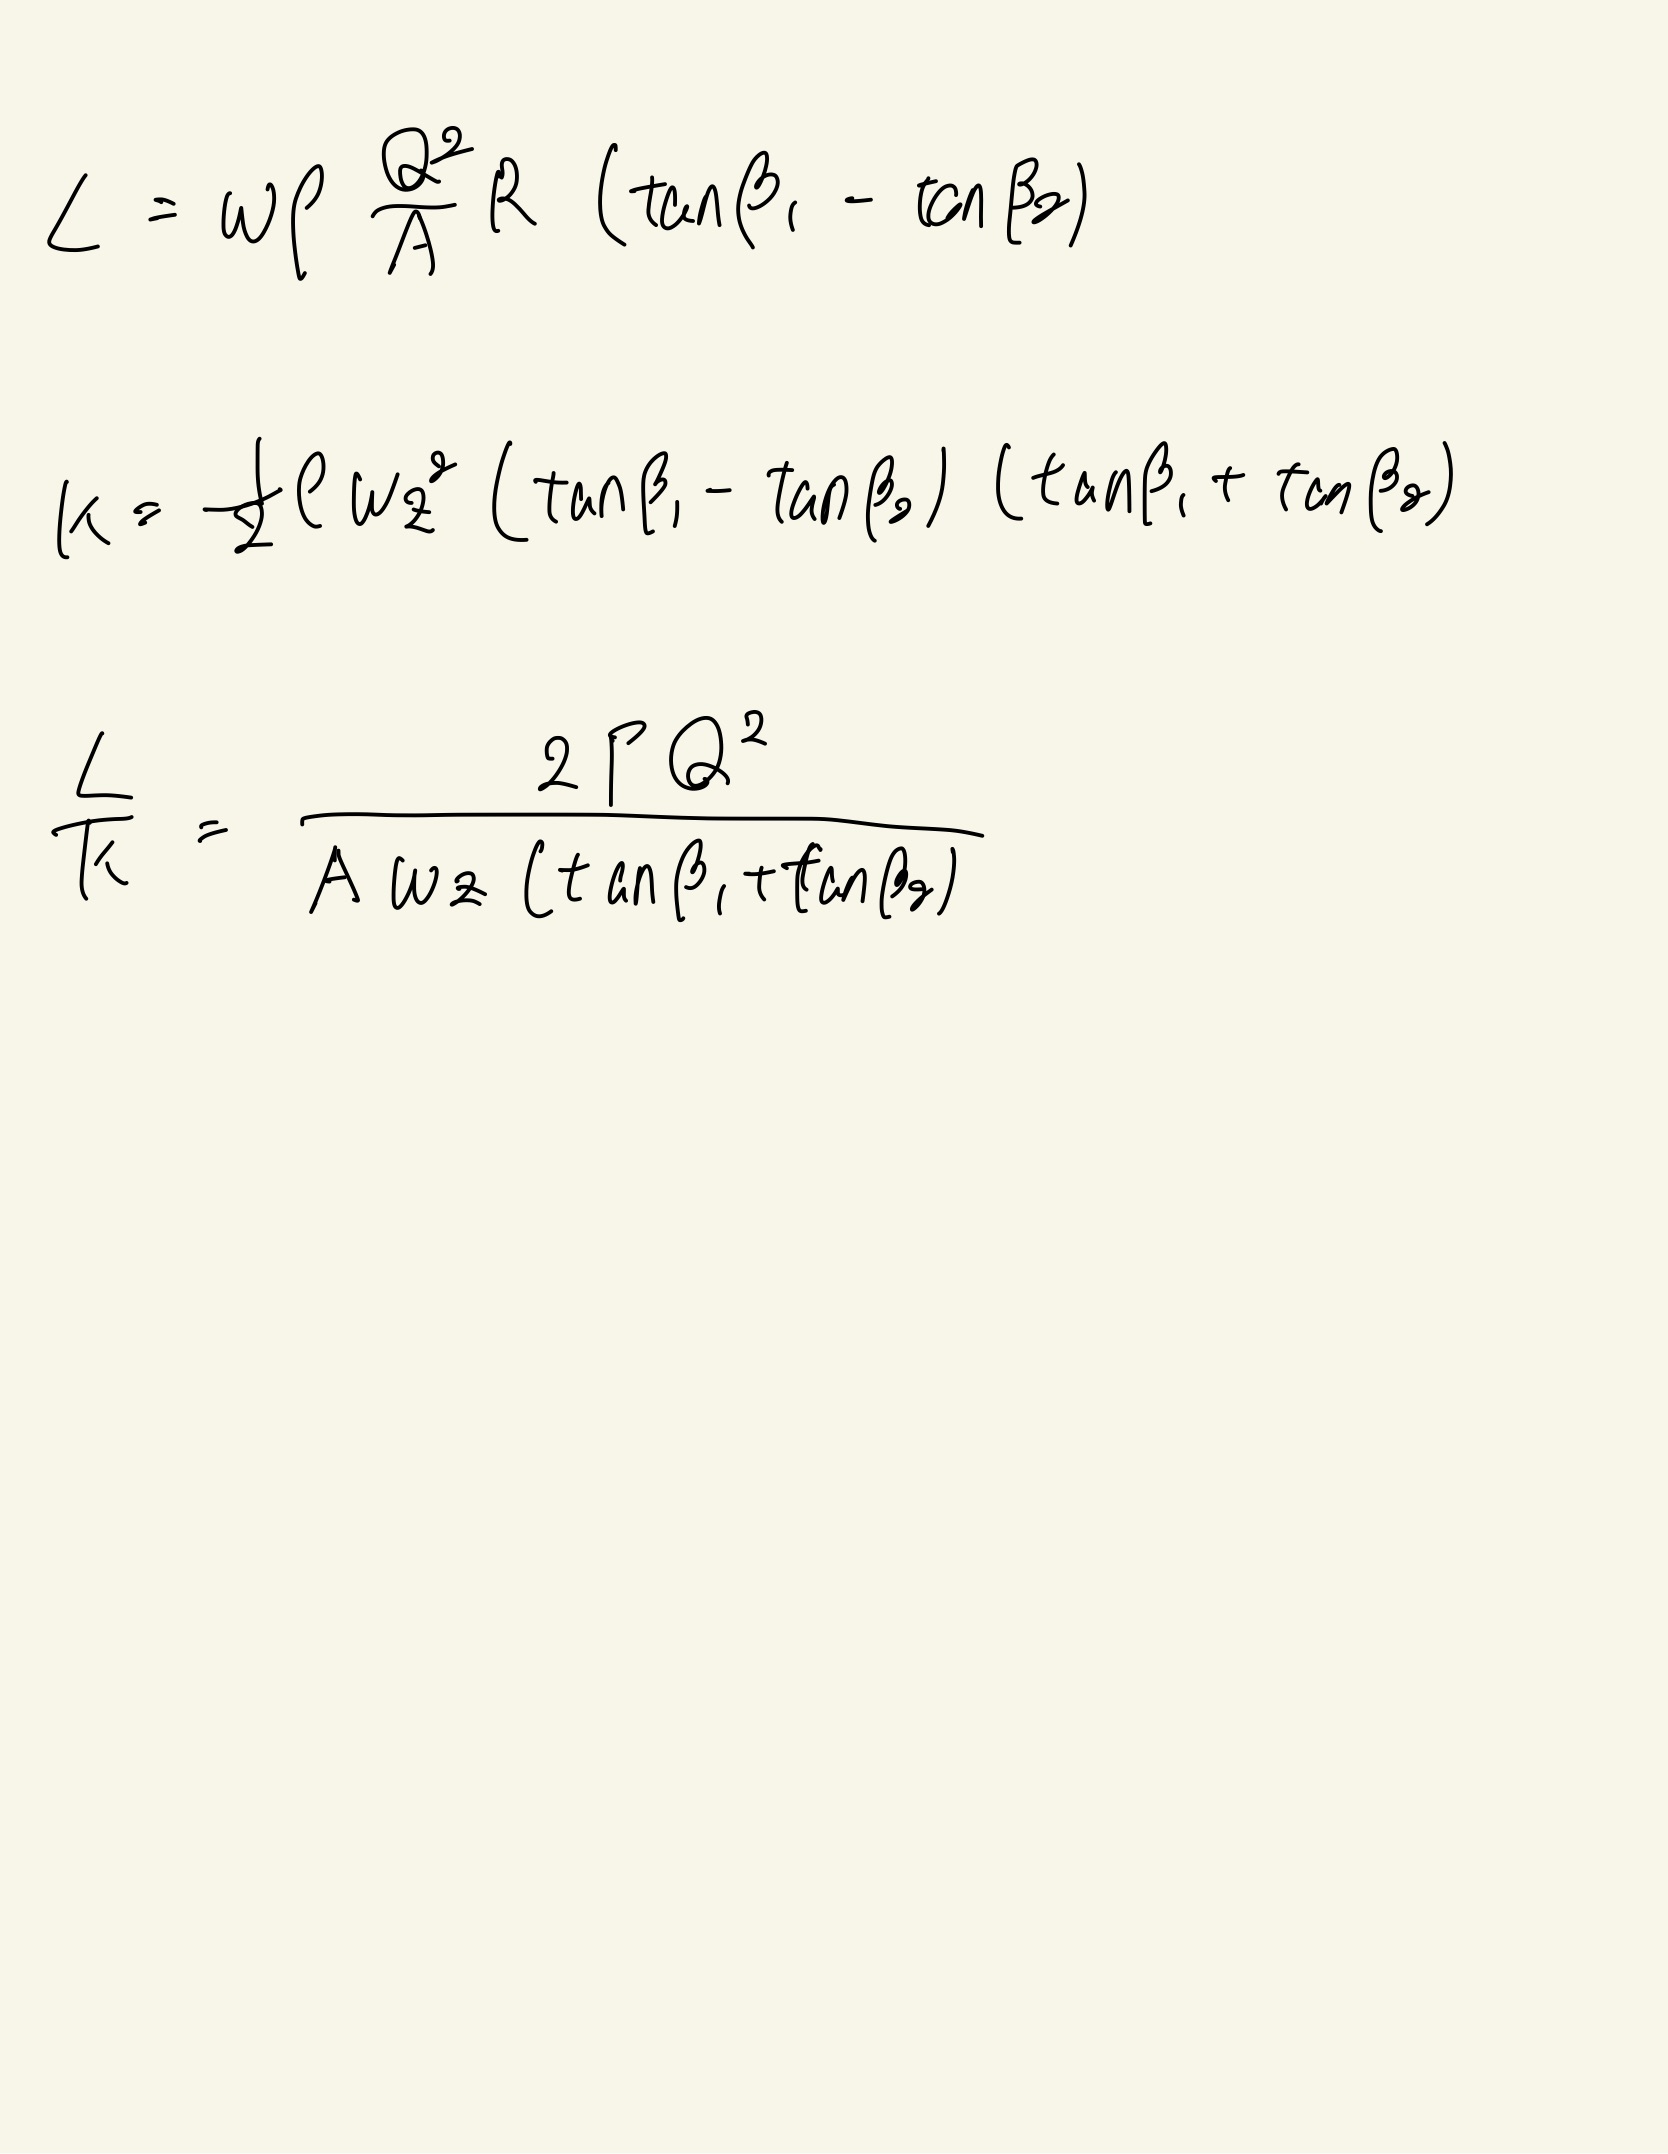 L = ωρ Q²/A R (tanβ₁ - tanβ₂)
K = 1/2 ρ W_z² (tanβ₁ - tanβ₂) (tanβ₁ + tanβ₂)
L/K = 2ΓQ² / A W_z (tanβ₁ + tanβ₂)